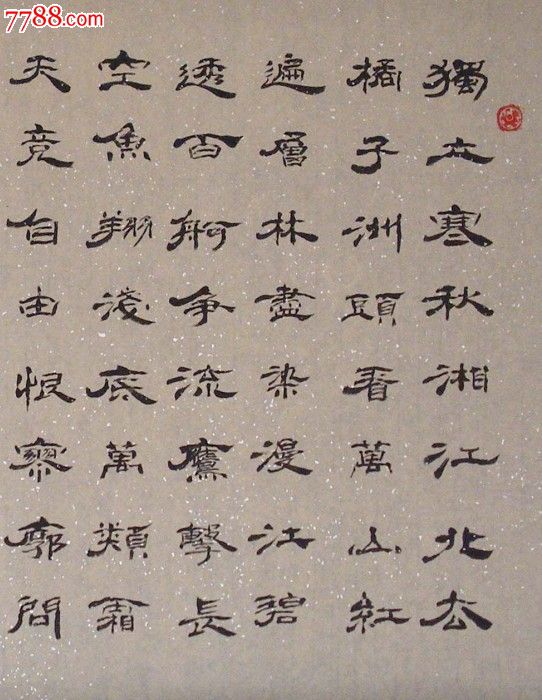 7788.com
獨立寒秋湘江北去
橘子洲頭看萬山紅
遍層林盡染漫江碧
透百舸争流鷹擊長
空魚翔淺底萬類霜
天竞自由恨寥廓問